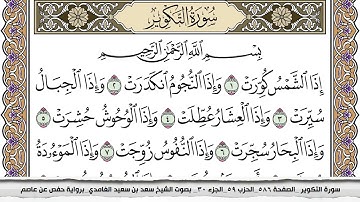 سُورَةُ التَّكْوِيرِ
بِسْمِ اللَّهِ الرَّحْمَٰنِ الرَّحِيمِ
إِذَا الشَّمْسُ كُوِّرَتْ ١ وَإِذَا النُّجُومُ انْكَدَرَتْ ٢ وَإِذَا الْجِبَالُ
سُيِّرَتْ ٣ وَإِذَا الْعِشَارُ عُطِّلَتْ ٤ وَإِذَا الْوُحُوشُ حُشِرَتْ ٥
وَإِذَا الْبِحَارُ سُجِّرَتْ ٦ وَإِذَا النُّفُوسُ زُوِّجَتْ ٧ وَإِذَا الْمَوْءُودَةُ
سورة التكوير _الصفحة ٥٨٦_الحزب ٥٩_الجزء ٣٠_ بصوت الشيخ سعد بن سعيد الغامدي_برواية حفص عن عاصم